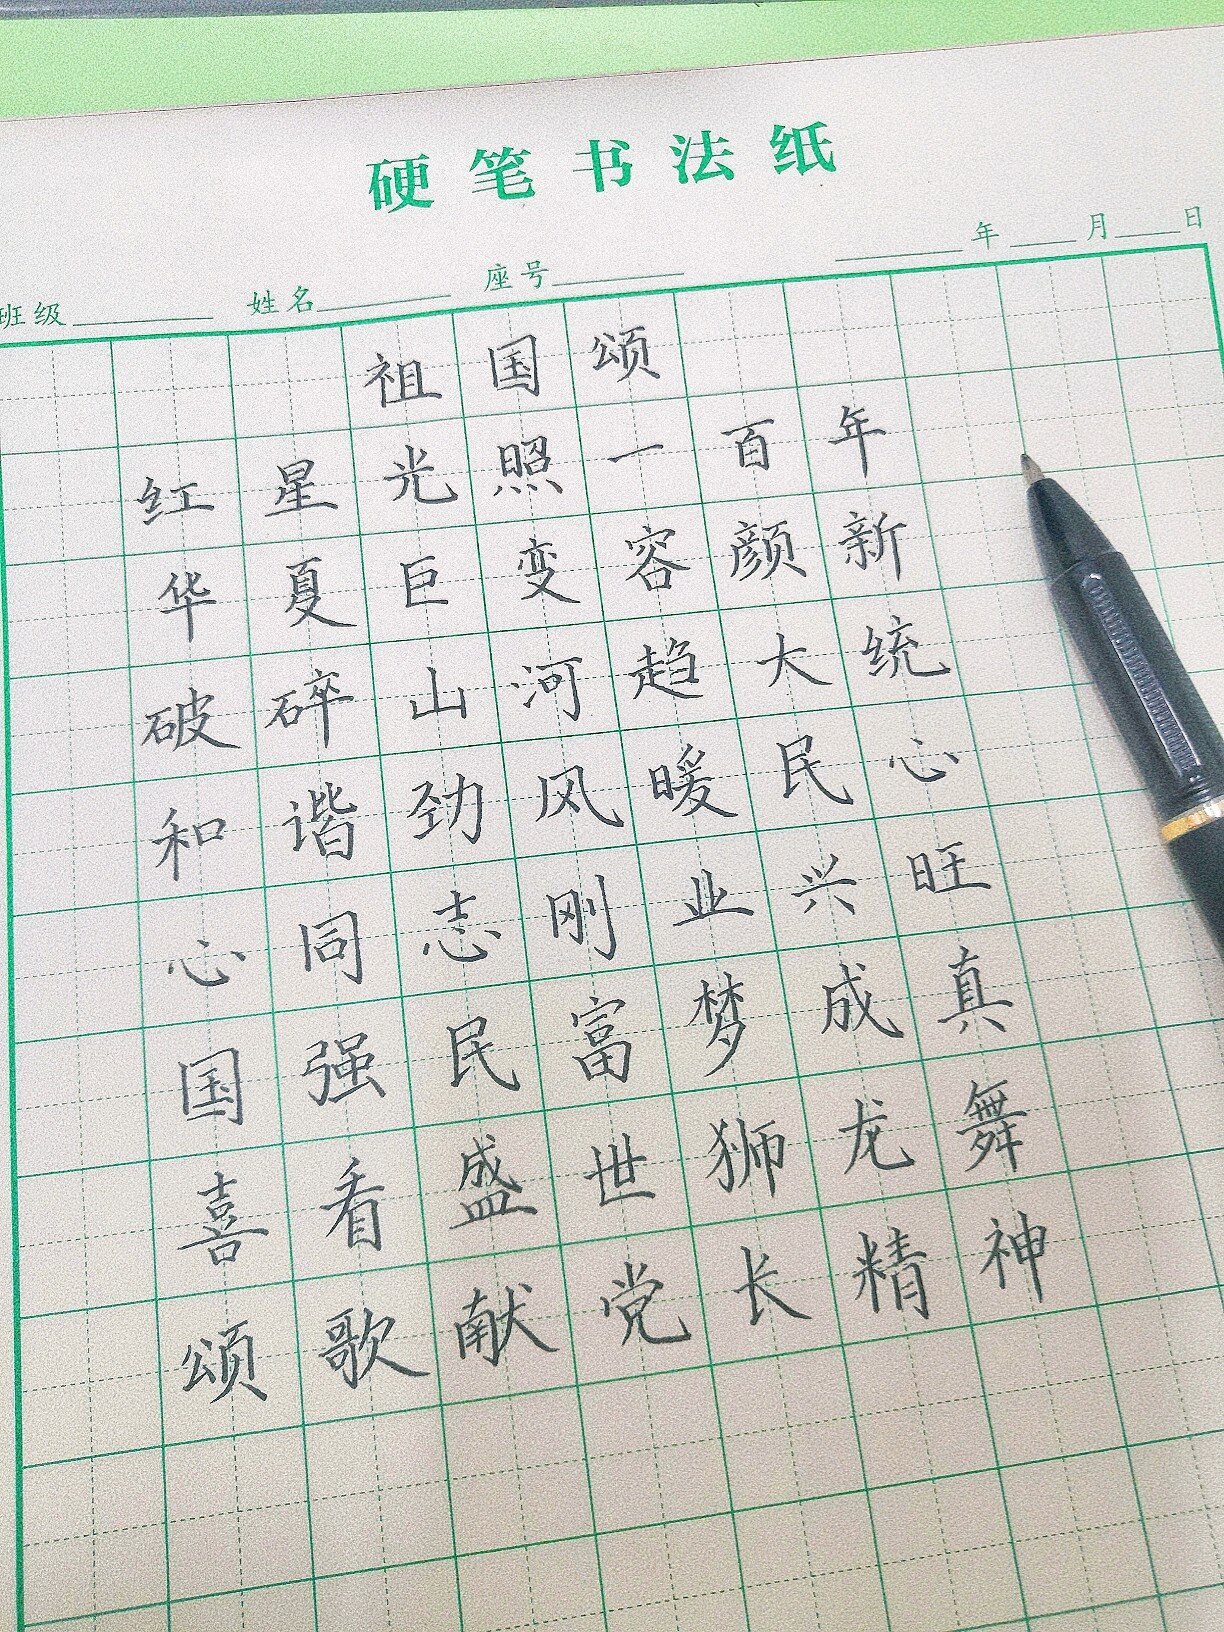 硬笔书法纸
班级 姓名 座号 年 月 日
祖国颂
红星光照一百年
华夏巨变容颜新
破碎山河趋大统
和谐劲风暖民心
心同志刚业兴旺
国强民富梦成真
喜看盛世狮龙舞
颂歌献党长精神